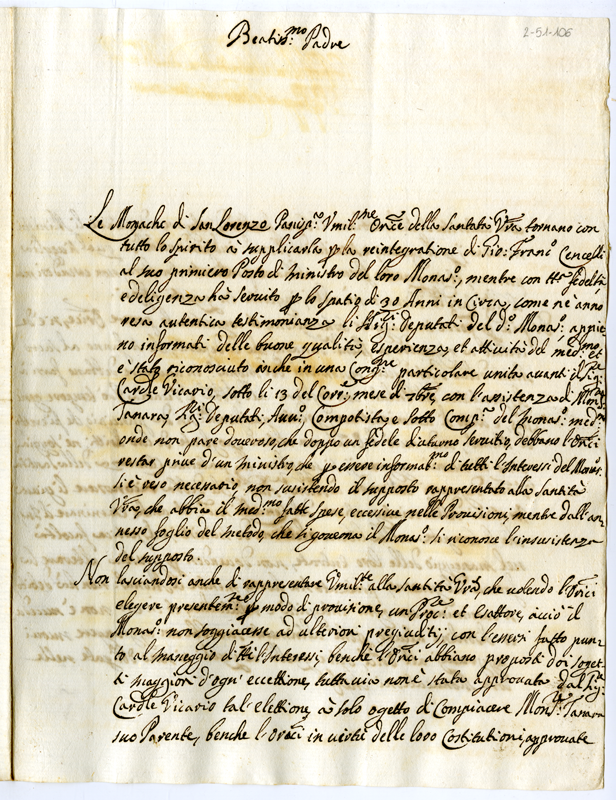 2-51-106
Beatiss.mo Padre
Le Monache di San Lorenzo Panisp.a Vmil.me Orat.ci della Santità V'ra tornano con
tutto lo spirito à supplicarla p la reintegratione di Gio: Fran.o Cencelli
al suo primiero Posto di ministro del loro Monas.o, mentre con tt.a fedeltà
e deligenza hà servuito p lo spatio di 30 Anni in Circa, come n'è anno
resa autentica testimonianza li SS.ri Deputati del d.o Monas.o appie
no informati delle buone qualità, esperienza, et attività del med.mo, et
è stato riconosciuto anche in una Cong.ne particolare unita auanti il Sig.
Card.le Vicario, sotto li 13 del Corr.e mese di 7bre, con l'assistenza di Mons.
Tanara, Deputati, Auu.o, Computista, e sotto Comp.a del monas.o med.mo
onde non pare doueroso, che doppo un fedele diuturno Seruitio, debbano l'Or.ci
restar priue d'un ministro, che p essere informat.mo di tutti l'Interessi del Monas.o
si è reso necesario non susistendo il supposto rappresentato alla santità
V'ra, che abbia il med.mo fatte spese, eccesiue nelle Prouisioni, mentre dall'an,
nesso foglio del metodo, che si gouerna il Monas.o si riconosce l'insusistenza
del supposto.
Non lasciandosi anche di rappresentare Vmil.te alla santità V'ra, che uolendo l'Or.ci
elegere presentem.te p modo di prouisione, un Proc.re et Esattore, acciò il
Monas.o non soggiacesse ad ulteriori pregiuditij, con l'essersi fatto pun,
to al maneggio di tt.i l'Interessi, benche l'Or.ci abbiano proposti doi sogget
ti maggiori d'ogni eccettione, tutta uia non è stata approuata dal Sig.
Card.le Vicario tal'elettione, à solo ogetto di Compiacere Mons.r Tanara
suo Parente, benche l'Or.ci in uirtù delle loro Costitutioni, approuate